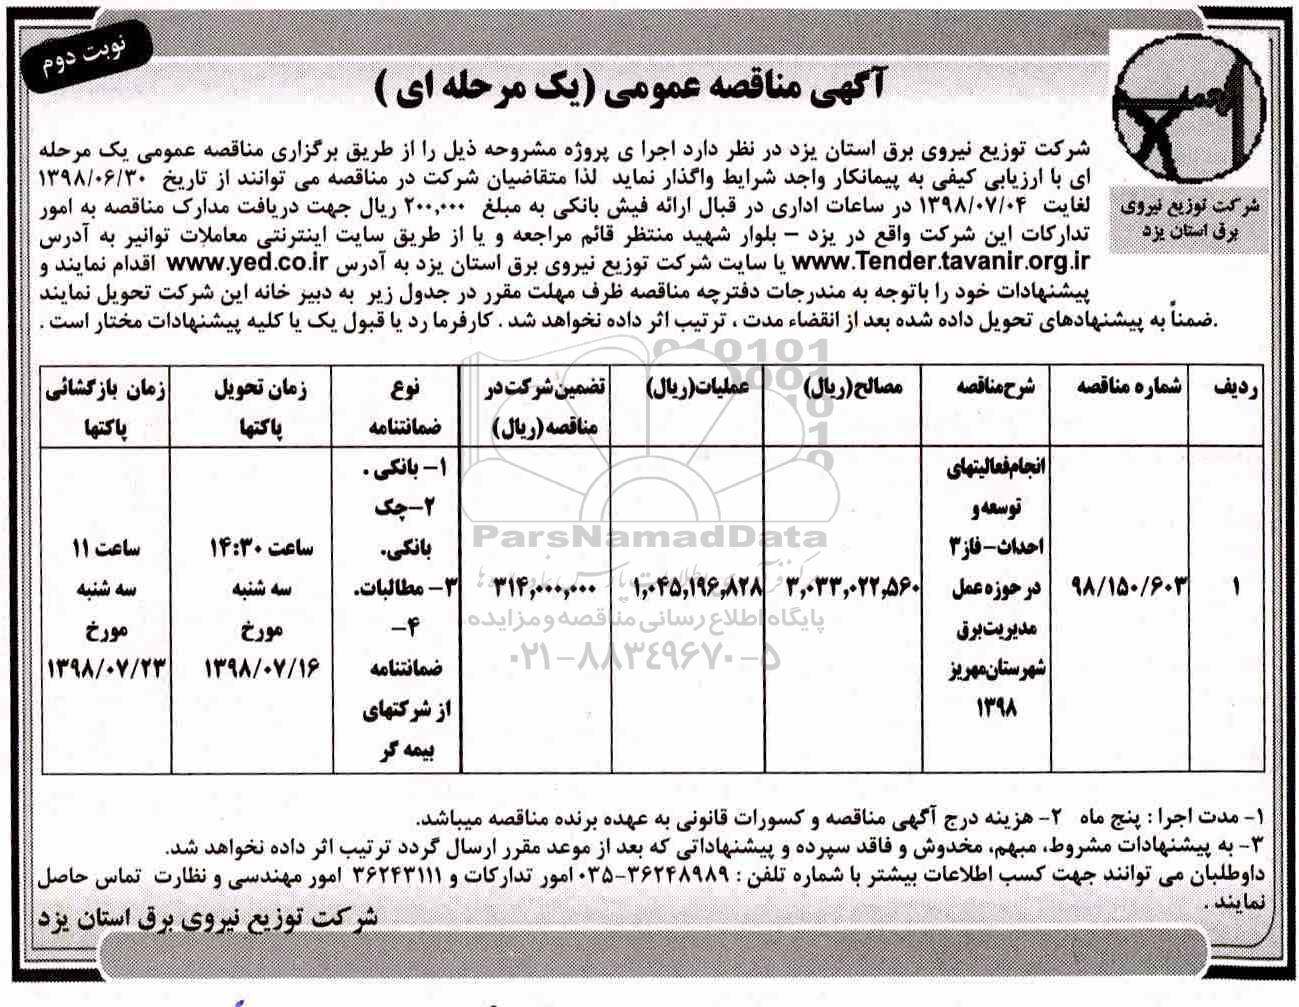 نوبت دوم
آگهی مناقصه عمومی (یک مرحله ای )
شرکت توزیع نیروی برق استان یزد در نظر دارد اجرا ی پروژه مشروحه ذیل را از طریق برگزاری مناقصه عمومی یک مرحله
ای با ارزیابی کیفی به پیمانکار واجد شرایط واگذار نماید لذا متقاضیان شرکت در مناقصه می توانند از تاریخ ۱۳۹۸/۰۶/۳۰
لغایت ۱۳۹۸/۰۷/۰۴ در ساعات اداری در قبال ارائه فیش بانکی به مبلغ ۲۰۰,۰۰۰ ریال جهت دریافت مدارک مناقصه به امور
تدارکات این شرکت واقع در یزد – بلوار شهید منتظر قائم مراجعه و یا از طریق سایت اینترنتی معاملات توانیر به آدرس
www.Tender.tavanir.org.ir یا سایت شرکت توزیع نیروی برق استان یزد به آدرس www.yed.co.ir اقدام نمایند و
پیشنهادات خود را باتوجه به مندرجات دفترچه مناقصه ظرف مهلت مقرر در جدول زیر به دبیر خانه این شرکت تحویل نمایند
.ضمناً به پیشنهادهای تحویل داده شده بعد از انقضاء مدت ، ترتیب اثر داده نخواهد شد . کارفرما رد یا قبول یک یا کلیه پیشنهادات مختار است .
شرکت توزیع نیروی
برق استان یزد
ردیف شماره مناقصه شرح مناقصه مصالح(ریال) عملیات(ریال) تضمین شرکت در مناقصه(ریال) نوع ضمانتنامه زمان تحویل پاکتها زمان بازگشائی پاکتها
۱
۹۸/۱۵۰/۶۰۳
انجام فعالیتهای
توسعه و
احداث–فاز۳
در حوزه عمل
مدیریت برق
شهرستان مهریز
۱۳۹۸
۳,۰۳۳,۰۲۲,۵۶۰
۱,۰۴۵,۱۹۶,۸۲۸
۳۱۴,۰۰۰,۰۰۰
۱– بانکی .
۲–چک
بانکی.
۳– مطالبات.
۴–
ضمانتنامه
از شرکتهای
بیمه گر
ساعت ۱۴:۳۰
سه شنبه
مورخ
۱۳۹۸/۰۷/۱۶
ساعت ۱۱
سه شنبه
مورخ
۱۳۹۸/۰۷/۲۳
ParsNamadData
پایگاه اطلاع رسانی مناقصه و مزایده
۰۲۱–۸۸۳۴۹۶۷۰–۵
۱– مدت اجرا : پنج ماه ۲– هزینه درج آگهی مناقصه و کسورات قانونی به عهده برنده مناقصه میباشد.
۳– به پیشنهادات مشروط، مبهم، مخدوش و فاقد سپرده و پیشنهاداتی که بعد از موعد مقرر ارسال گردد ترتیب اثر داده نخواهد شد.
داوطلبان می توانند جهت کسب اطلاعات بیشتر با شماره تلفن : ۳۶۲۴۸۹۸۹–۰۳۵ امور تدارکات و ۳۶۲۴۳۱۱۱ امور مهندسی و نظارت تماس حاصل
نمایند .
شرکت توزیع نیروی برق استان یزد